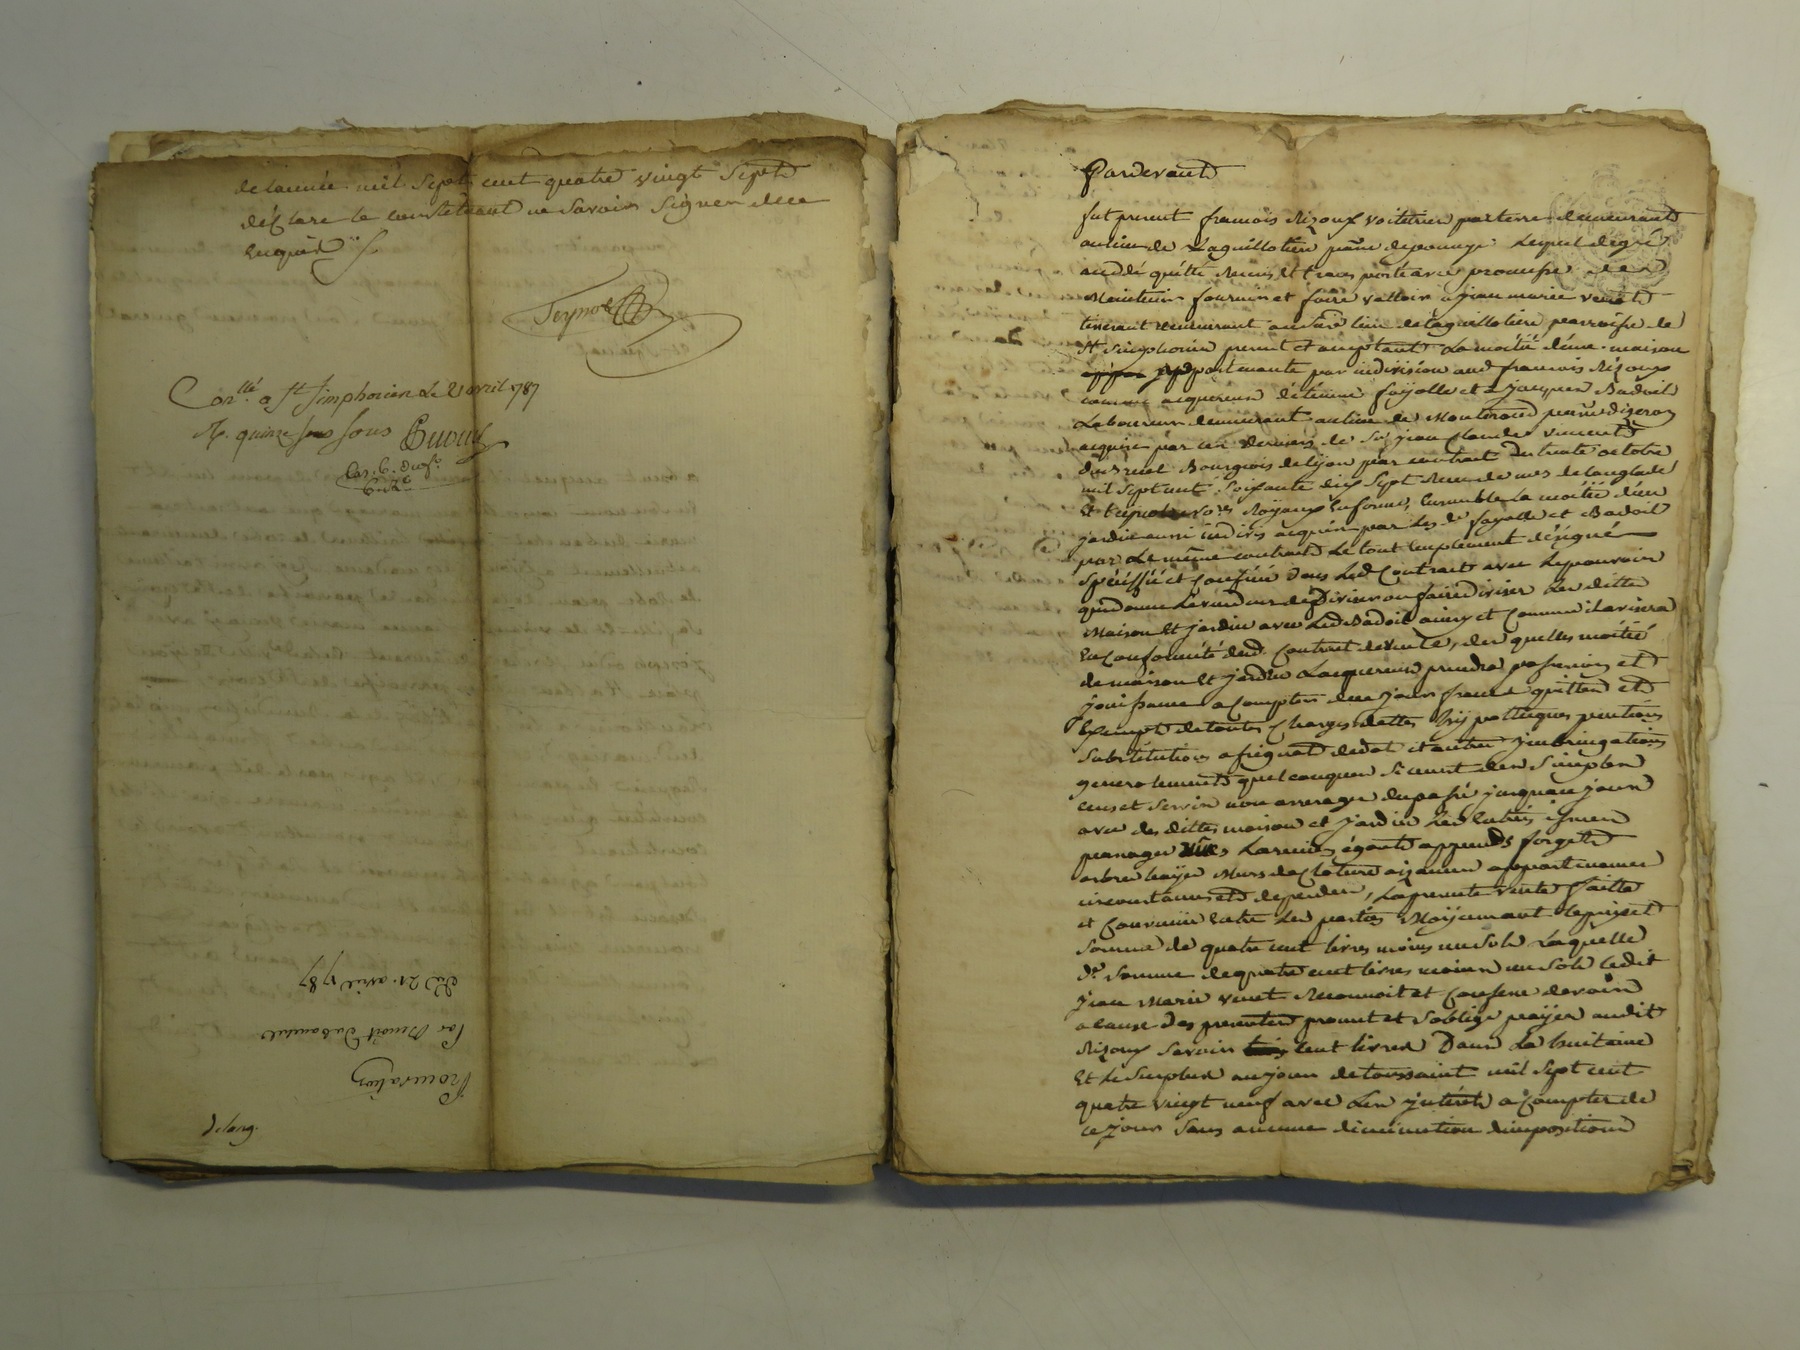 de lannée mil sept cent quatre vingt sept
déclare le constituant ne savoir signer de ce
enquis
Teynod
Con.llé a St Simphorien Le 21 avril 1787
R. quinze sous
Procuration
Par Benoit
Du 21. avril 1787
Pardevant
fut present francois Rizoux voiturier par terre demeurant
au lieu de Laguillotière Lequel de gré
a cédé quitté Remis et transporté avec promesse de
Maintenir fournir et faire valloir a jean marie venet
tisserant demeurant audit lieu de Laguillotière parroisse de
St Simphorien present et acceptant La moitié d'une maison
appartenante par indivision aud francois Rizoux
comme acquereur d'étienne fayolle et a jacques Badoil
Laboureur demeurant au lieu de
acquise par ces derniers de Sr jean claude vincent
Bourgeois de Lyon par contract du trente octobre
mil sept cent soixante dix sept Reçu de mes de Langlade
et Royaux en forme, Ensemble La moitié d'un
jardin aussi indivis acquis par Les d. fayolle et Badoil
par Le même contrat Le tout emplement désigné
spéciffié et confiné dans Led Contrat avec Le pouvoir
que donne Le vendeur de diviser ou faire diviser Les dittes
Maison et jardin avec Led Badoil ainsy et comme il avisera
En Conformité dud. Contract de vente, des quelles moitié
de maison et jardin Lacquereur prendra possession et
jouissance a compter de ce jour franc quitte et
Exempt de toutes Charges dettes hÿpottèques pentions
Substitutions affregnat dedot et autres
generalement quelconques si ce n'est des simples
cens et servis non arreragés du passé jusqua ce jour
avec des dittes maison et jardin Les Entrés issues
passages égouts appends forgets
arbres hayes Murs de Cloture aizances appartenances
circonstances et dependces, La presente vente faitte
et convenüe Entre Les parties Moÿennant Le prix et
somme de quatre cent livres moins un sols Laquelle
de. somme de quatre cent livres moins un sols ledit
jean Marie venet Reconnoit et Confesse devoir
a cause des presentes promet et s'oblige payer audit
Rizoux Savoir cent livres Dans La huitaine
Et Le surplus au jour de toussaint mil sept cent
quatre vingt neuf avec Les jnterêts a compter de
ce jour sans aucune diminution d'impositions